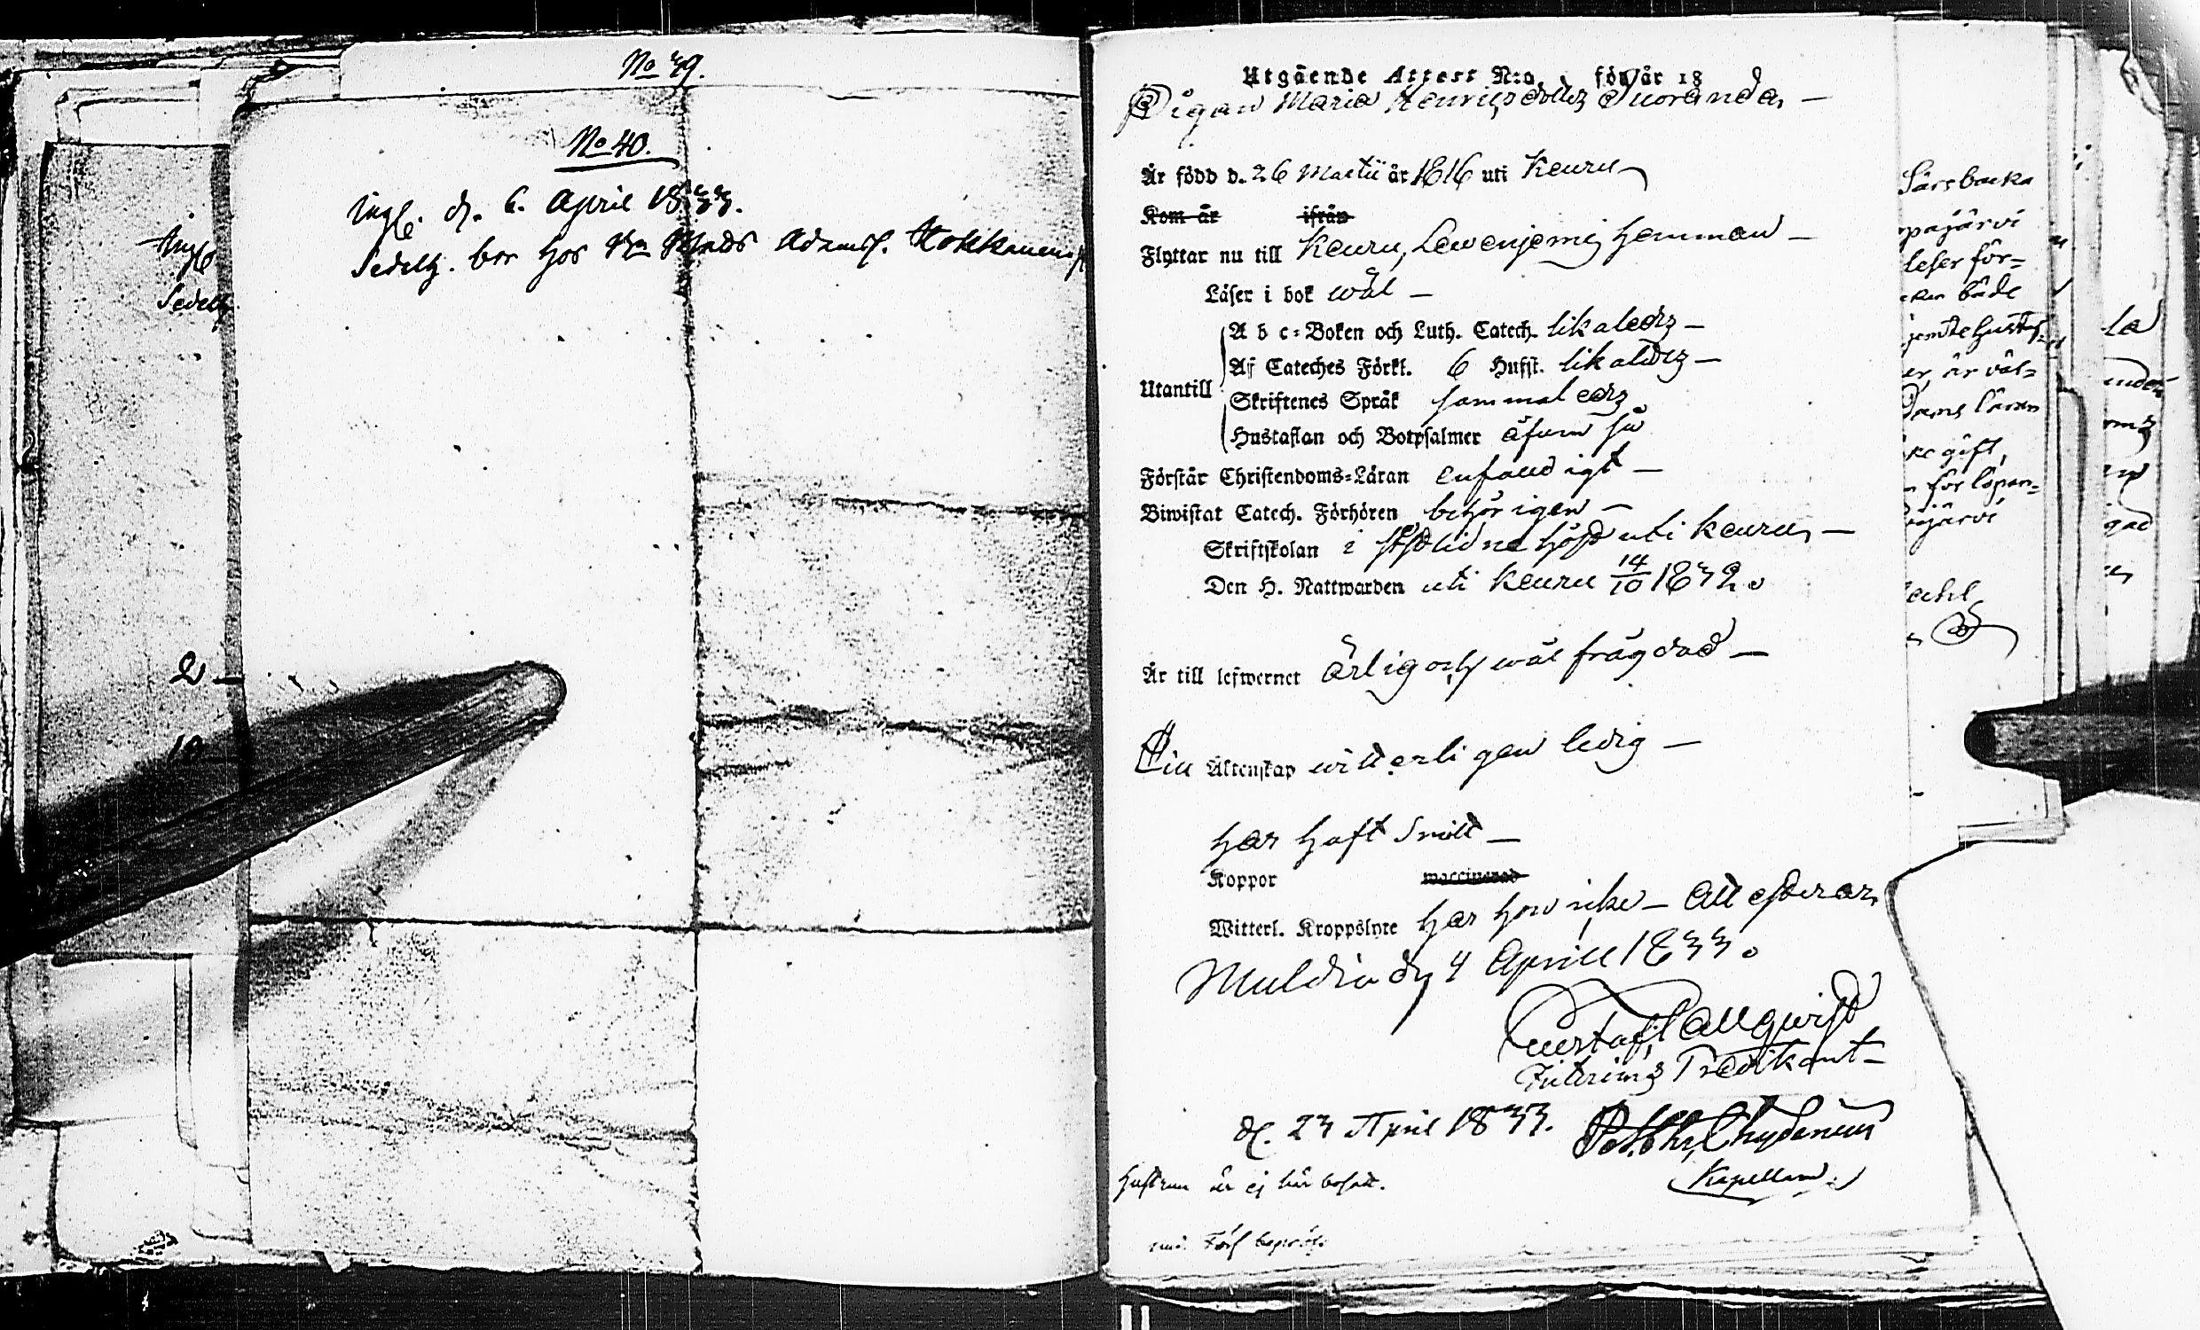 No 49.
No 40.
Ingl. d. 6. April 1833.
Sedelh. bor hos Mads Adamss. Kokkanen
Ingl
Sedelh
2
10
Utgående Attest N:o för år 18
Pigan Maria Henricsdotter Suoranda
Är född d. 26 Martii år 1816 uti Keuru
Kom år ifrån
Flyttar nu till Keuru, Lewenjemi hemman
Läser i bok wäl
A b c-Boken och Luth. Catech. likaledes
Af Cateches Förkl. 6 Hufst. likaledes
Utantill
Skriftenes Språk sammaledes
Hustaflan och Botpsalmer äfwen så
Förstår Christendoms-Läran enfaldigt
Biwistat Catech. Förhören behörigen
Skriftskolan i sistlidne höst uti Keuru
Den H. Nattwarden uti Keuru 14/10 1832.
Är till lefwernet ärlig och wäl frägdad
Till Äktenskap witterligen ledig
har haft
Koppor waccinerad
Witterl. Kroppslyte har hon icke attesterar,
Muldia d. 4 Aprill 1833.
Gustaf Tallqwist
Predikant
d. 23 April 1833. Chydenius
Kapellan.
Hustrun är ej här
Särsbacka
pajärvi
leser för=
både
jemte hustaf=
er är väl=
Dams läran
ke gift,
för löpan=
järvi
ahl
la
gad